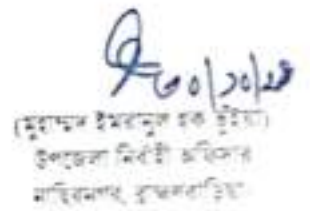 ৩০/১০/২৪
(মুহাম্মদ ইমরানুল হক ভূঁইয়া)
উপজেলা নির্বাহী অফিসার
নাসিরনগর, ব্রাহ্মণবাড়িয়া